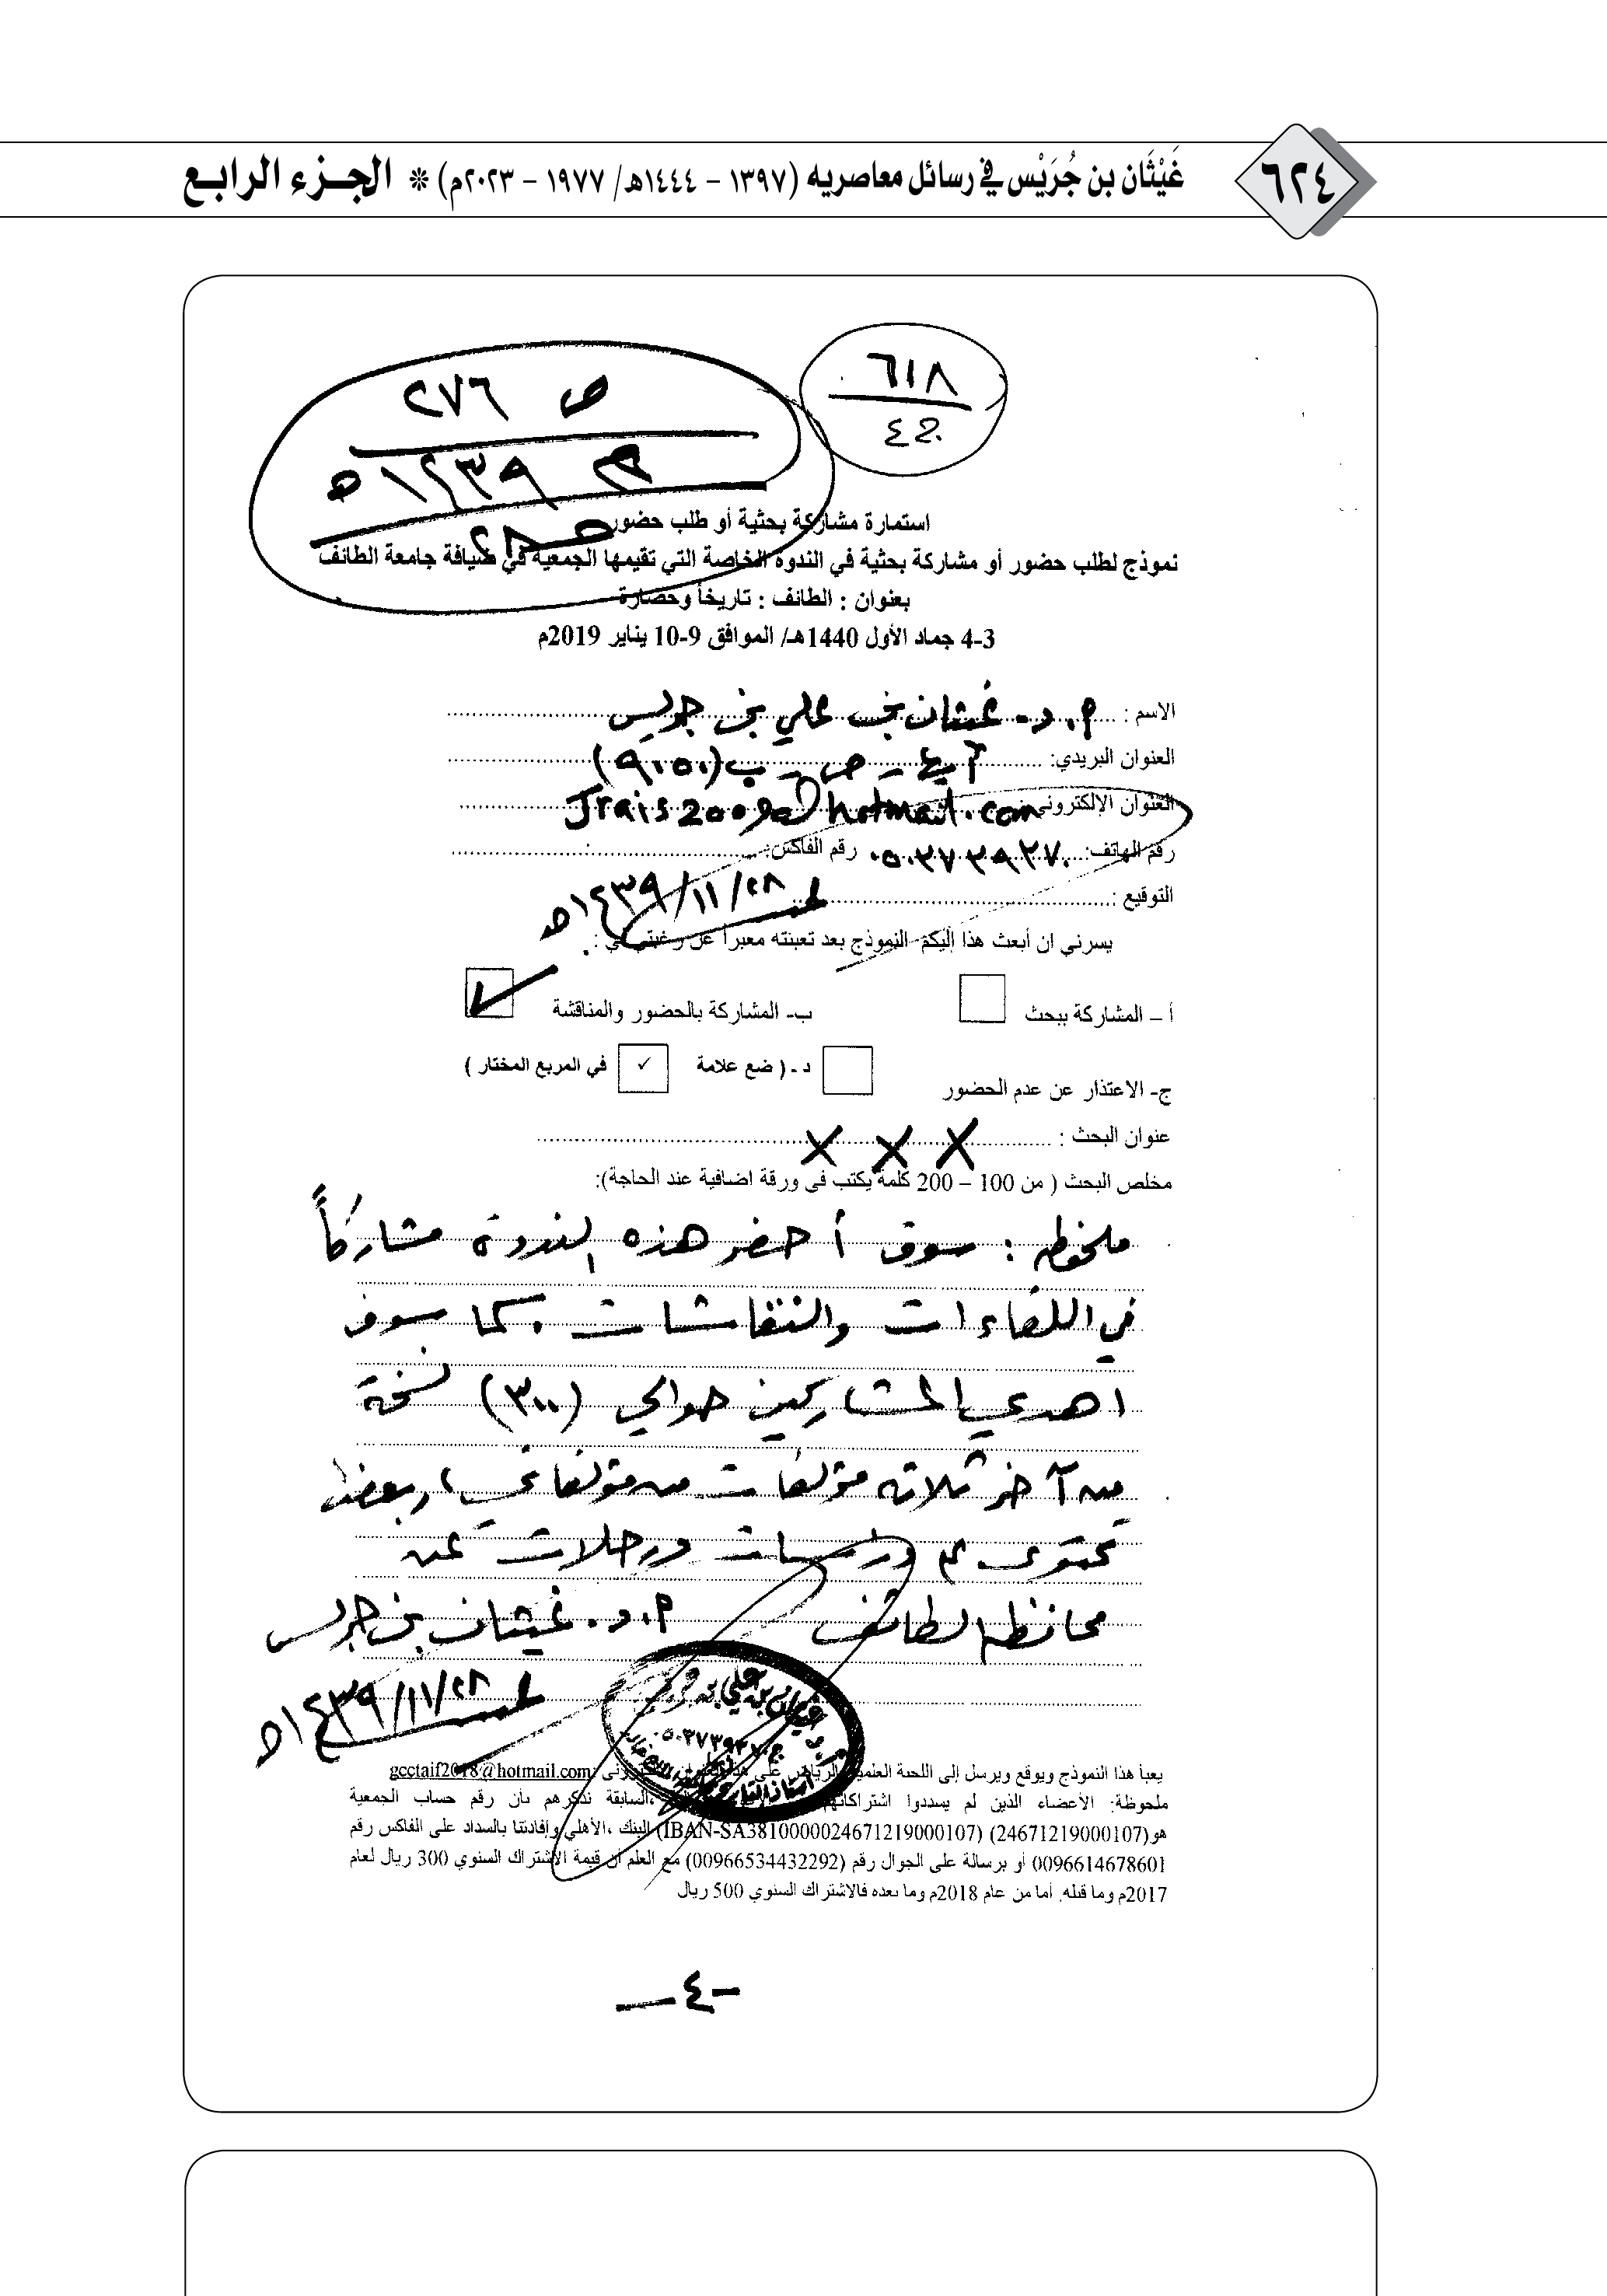 ٦٢٤
غَيْثَان بن جُرَيْس في رسائل معاصريه (١٣٩٧ – ١٤٤٤هـ/ ١٩٧٧ – ٢٠٢٣م) ❊ الجزء الرابع
٦١٨
ج٤
ص ٢٧٦
١٤٣٩هـ
استمارة مشاركة بحثية أو طلب حضور
نموذج لطلب حضور أو مشاركة بحثية في الندوة الخاصة التي تقيمها الجمعية في ضيافة جامعة الطائف
بعنوان : الطائف : تاريخاً وحضارة
3-4 جماد الأول 1440هـ/ الموافق 9-10 يناير 2019م
الاسم : أ.د. غيثان بن علي بن جريس
العنوان البريدي: أبها – ص . ب (٩٠٥٠)
العنوان الإلكتروني Jrais2009@hotmail.com
رقم الهاتف: ٠٥٠٣٧٣٩٣٧٠ رقم الفاكس:
التوقيع : ٢٨/١١/١٤٣٩هـ
يسرني ان أبعث هذا إليكم النموذج بعد تعبئته معبراً عن رغبتي في :
أ – المشاركة ببحث ب- المشاركة بالحضور والمناقشة ✓
ج- الاعتذار عن عدم الحضور د - ( ضع علامة ✓ في المربع المختار )
عنوان البحث : X X X
مخلص البحث ( من 100 – 200 كلمة يكتب في ورقة اضافية عند الحاجة):
ملحوظه : سوف أحضر هذه الندوة مشاركاً
في اللقاءات والنقاشات . كما سوف
اهدي المشاركين حوالي (٣٠٠) نسخة
من آخر ثلاثة مؤلفات من مؤلفاتي ، وبعضها
تحتوى على دراسات ورحلات عن
محافظه الطائف أ.د. غيثان بن جريس
٢٨/١١/١٤٣٩هـ
غيثان بن علي بن جريس
ج ٠٥٠٣٧٣٩٣٧٠
أستاذ التاريخ
يعبأ هذا النموذج ويوقع ويرسل إلى اللجنة العلمية الرياض على هذا gcctaif2018@hotmail.com
ملحوظة: الأعضاء الذين لم يسددوا اشتراكاتهم السابقة نذكرهم بأن رقم حساب الجمعية
هو(24671219000107) (IBAN-SA3810000024671219000107) البنك ،الأهلي وإفادتنا بالسداد على الفاكس رقم
0096614678601 أو برسالة على الجوال رقم (00966534432292) مع العلم ان قيمة الاشتراك السنوي 300 ريال لعام
2017م وما قبله. أما من عام 2018م وما بعده فالاشتراك السنوي 500 ريال
-٤-